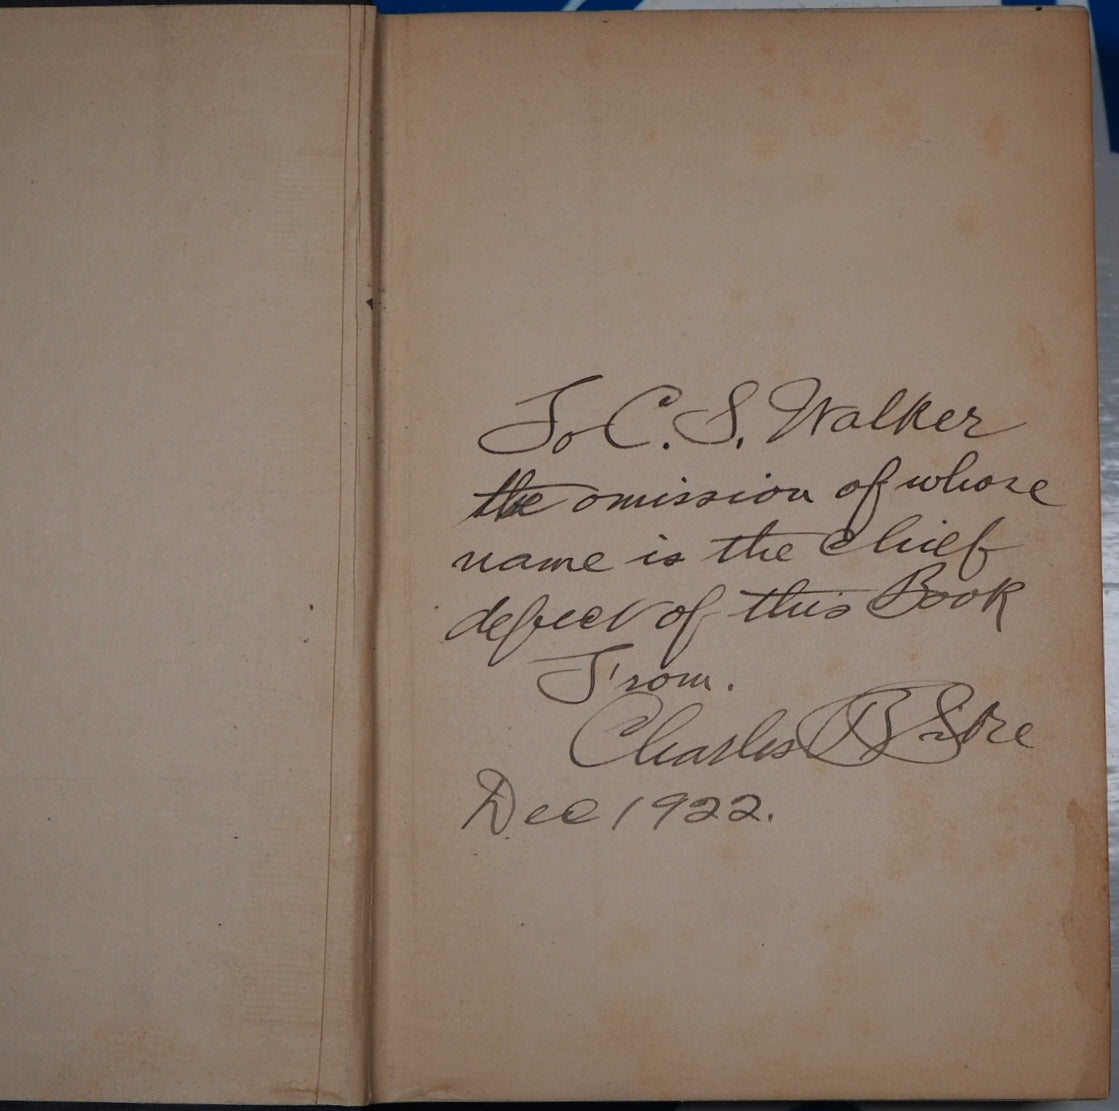 To C. S. Walker
the omission of whose
name is the chief
defect of this Book
From.
Charles B
Dec 1922.